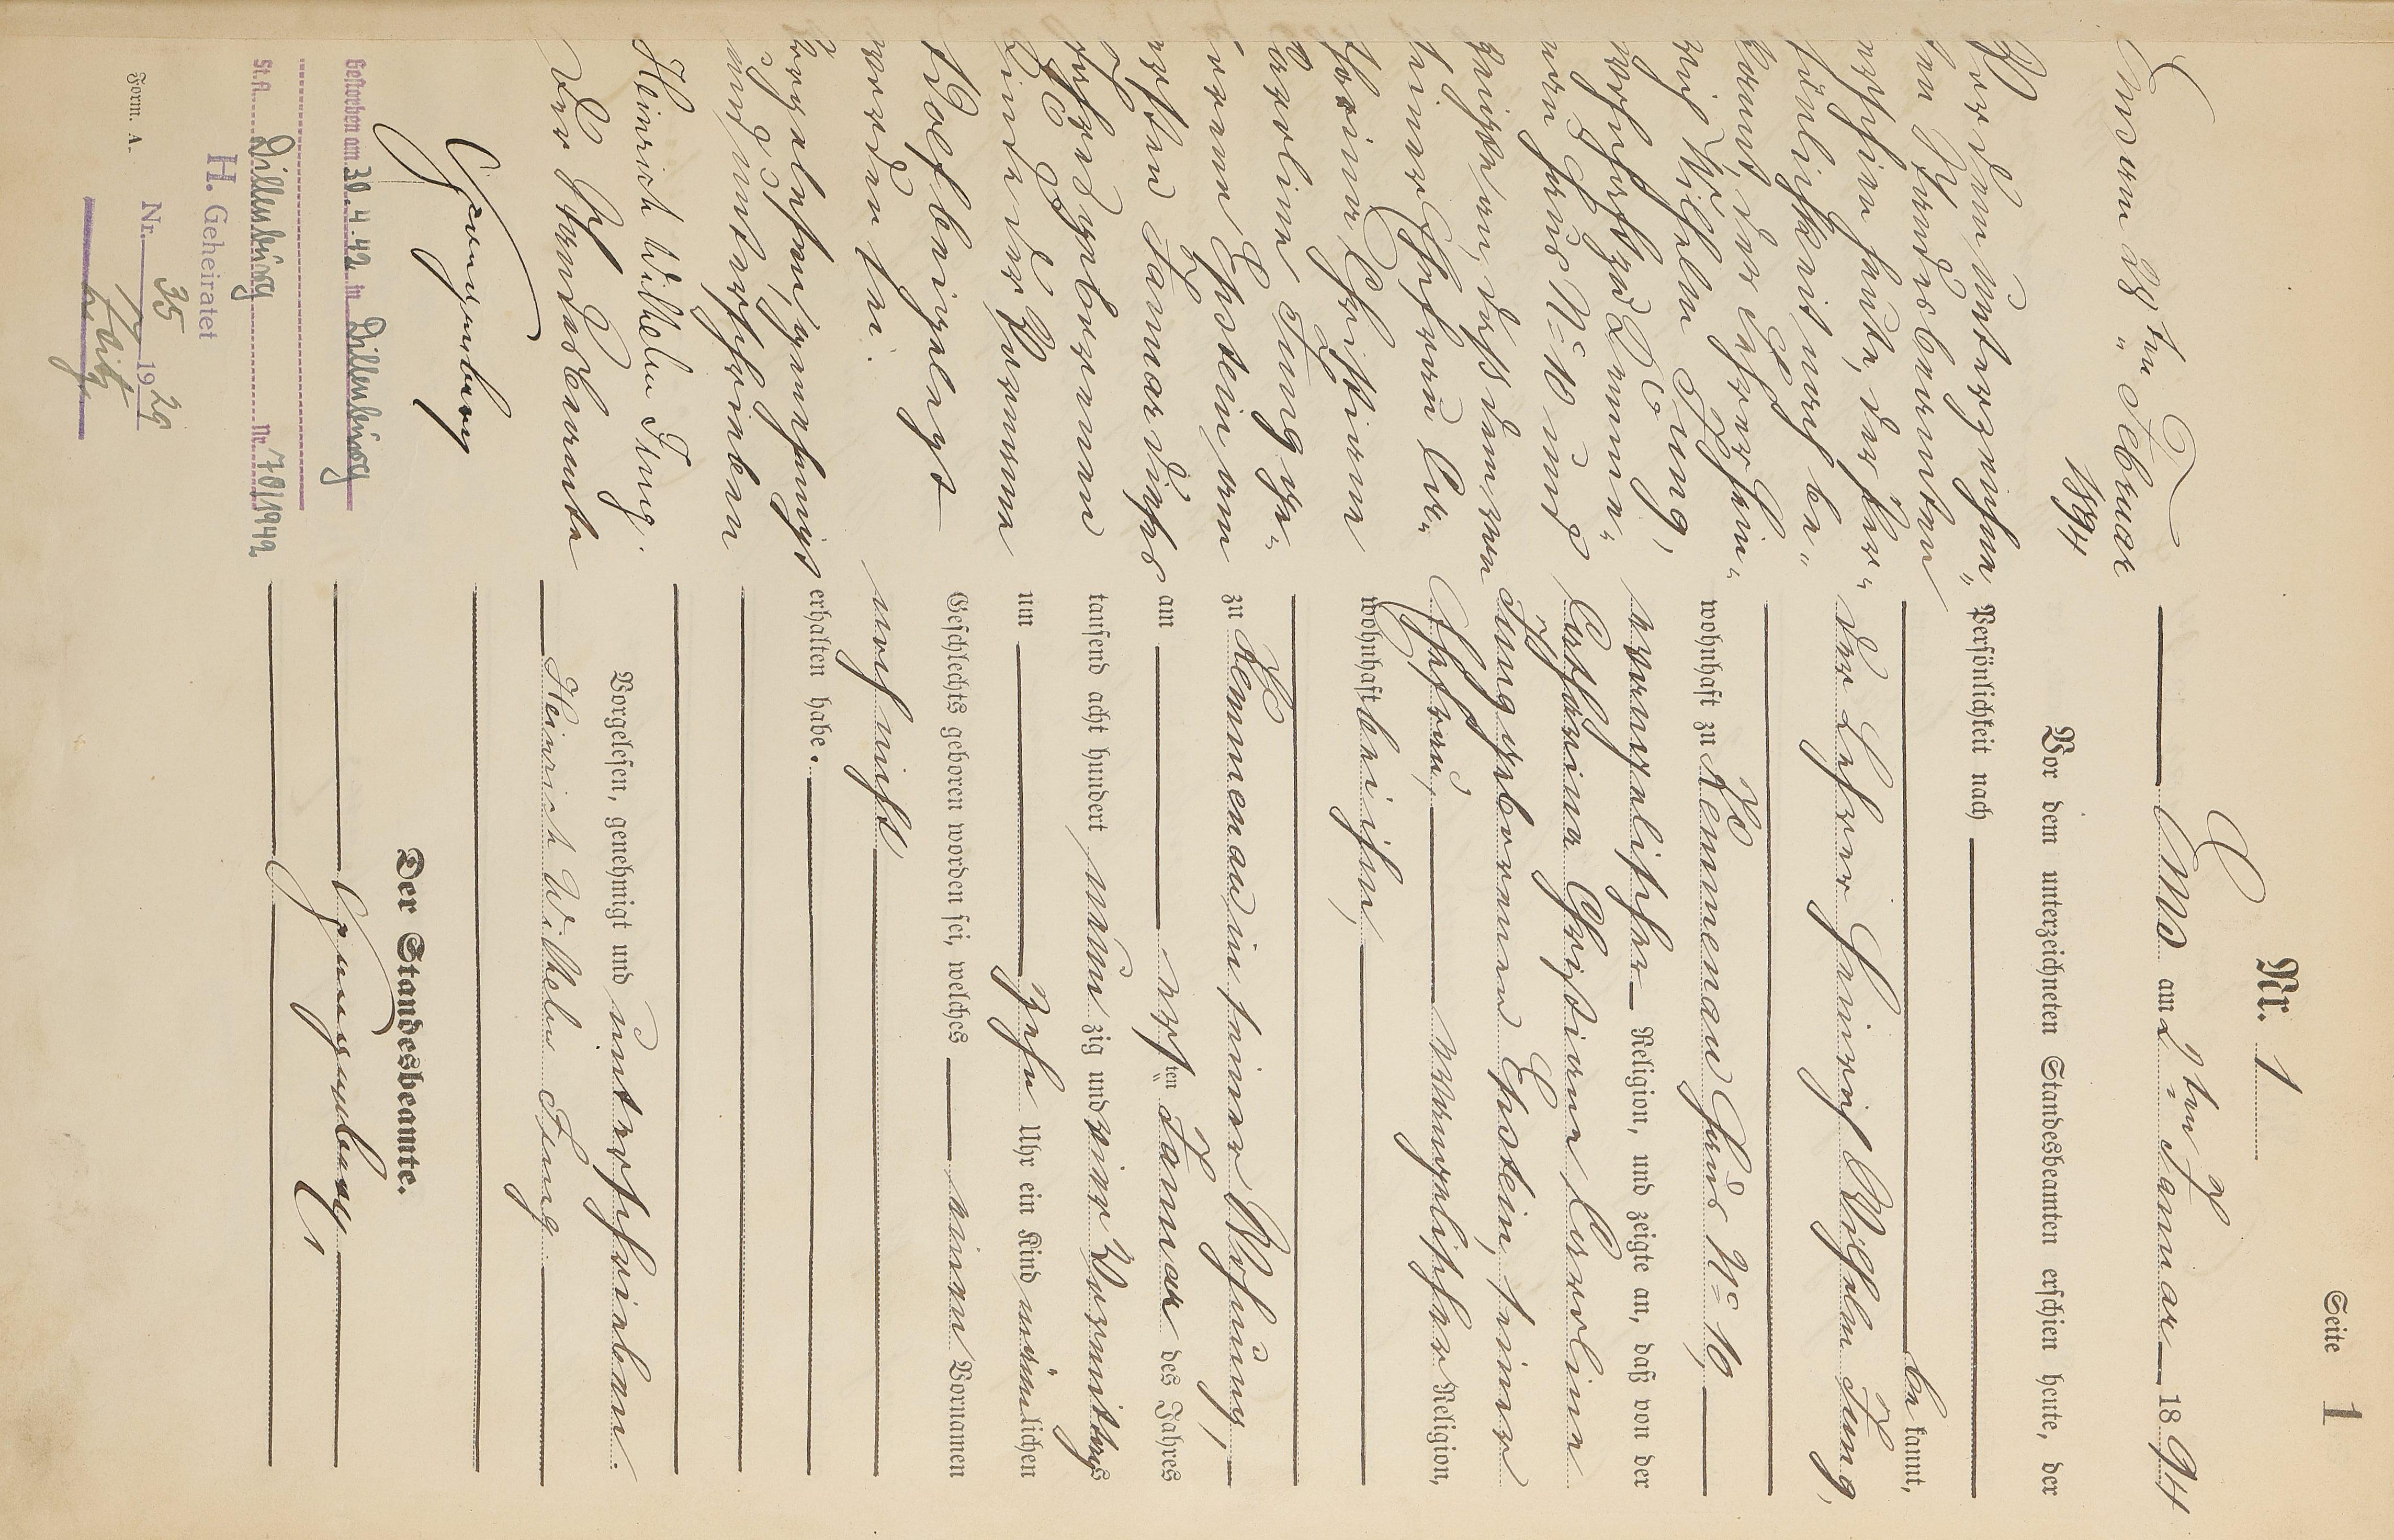 Seite 1
Nr. 1
Ems am 2ten Januar 1894
Vor dem unterzeichneten Standesbeamten erschien heute, der
Persönlichkeit nach
bekannt,
der Lehrer Heinrich Wilhelm Jung,
wohnhaft zu Kemmenau Haus No 10,
evangelischer Religion, und zeigte an, daß von der
Catharina Christiane Caroline
Jung geborenen Epstein, seiner
Ehefrau, evangelischer Religion,
wohnhaft bei ihm,
zu Kemmenau in seiner Wohnung,
am ersten Januar des Jahres
tausend acht hundert neun zig und vier Vormittags
um zehn Uhr ein Kind männlichen
Geschlechts geboren worden sei, welches einen Vornamen
noch nicht
erhalten habe.
Vorgelesen, genehmigt und unterschrieben.
Heinrich Wilhelm Jung
Der Standesbeamte.
Ems am 28ten Februar
1894
Vor dem unterzeichne-
ten Standesbeamten
erschien heute, der Per-
sönlichkeit nach be-
kannt, der Lehrer Hein-
rich Wilhelm Jung,
wohnhaft zu Kemme-
nau Haus No 10 und
zeigte an, daß dem von
seiner Ehefrau Ca-
tharina Christiane
Caroline Jung ge-
borenen Epstein, am
ersten Januar dieses
Jahres geborenen
Kinde der Vorname
Adolf beigelegt
worden sei.
Vorgelesen, genehmigt
und unterschrieben
Heinrich Wilhelm Jung.
Der Standesbeamte
Gestorben am 30.4.42 in Dillenburg
St.A. Dillenburg Nr. 70/1942
H. Geheiratet
Nr. 35 1929
Form. A.